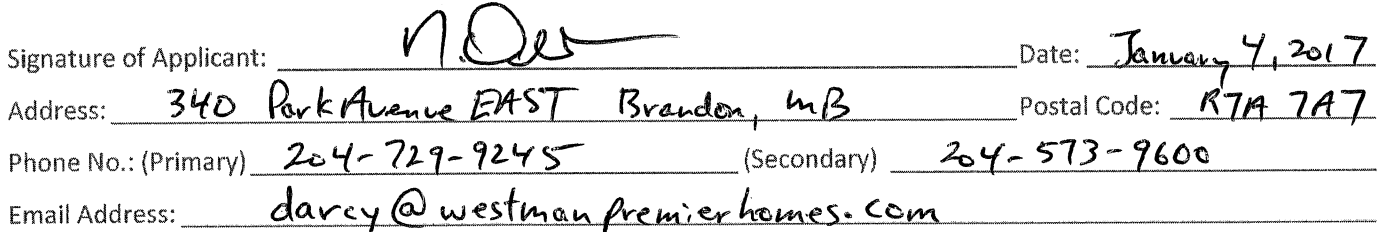 Signature of Applicant: Date: January 4, 2017
Address: 340 Park Avenue EAST Brandon, MB Postal Code: R7A 7A7
Phone No.: (Primary) 204-729-9245 (Secondary) 204-573-9600
Email Address: darcy@westmanpremierhomes.com